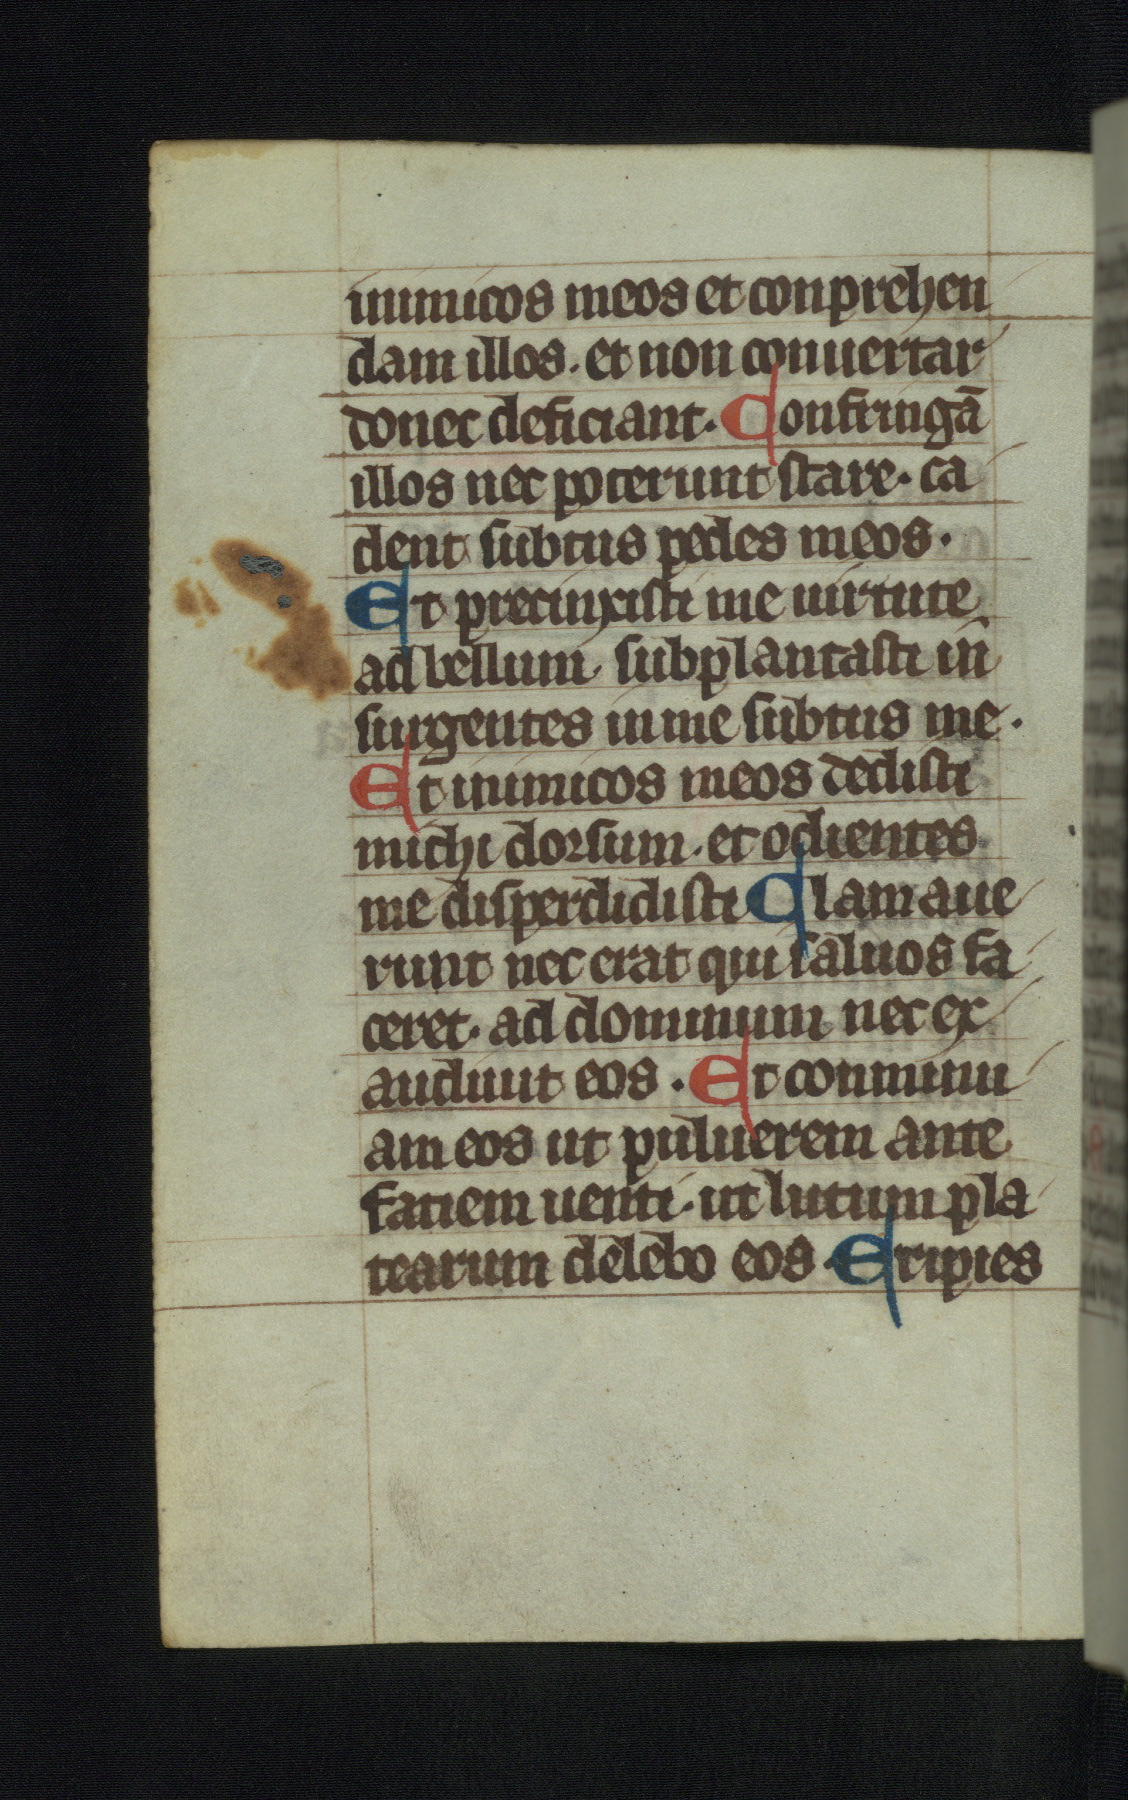 inimicos meos et conprehen
dam illos. et non conuertar
donec deficiant. Confringā
illos nec poterunt stare. ca
dent subtus pedes meos.
Et precinxisti me uirtute
ad bellum. subplantasti in
surgentes in me subtus me.
Et inimicos meos dedisti
michi dorsum. et odientes
me disperdidisti Clamaue
runt nec erat qui saluos fa
ceret. ad dominum nec ex
audiuit eos. Et conminu
am eos ut puluerem ante
faciem uenti. ut lutum pla
tearum delebo eos. Eripies